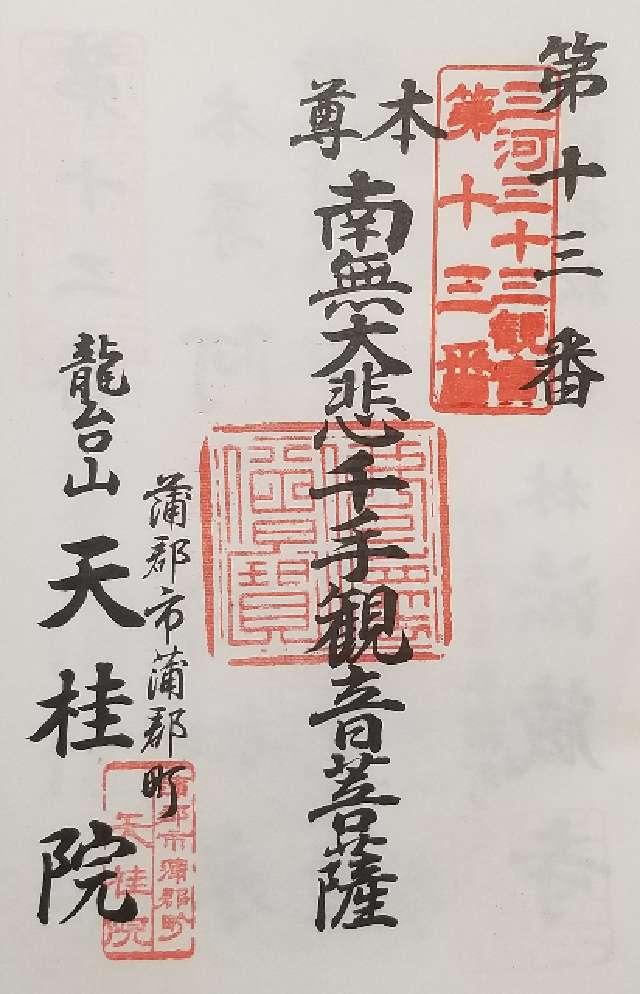 第十三番
三河三十三観音
第十三番
本尊
南無大悲千手観音菩薩
蒲郡市蒲郡町
龍台山 天桂院
蒲郡市蒲郡町
天桂院